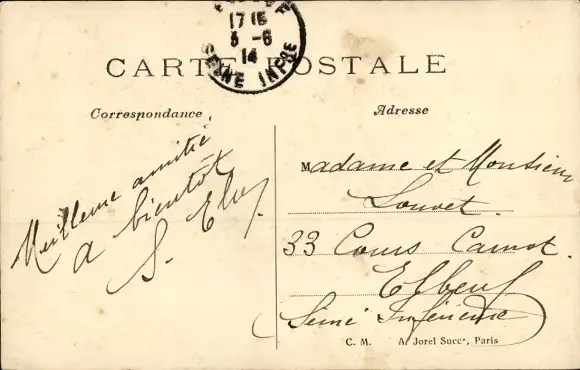 17 15
5 - 6
14
SEINE INFRE
CARTE POSTALE
Correspondance
Adresse
Meilleure amitié
a bientôt
S.
Madame et Monsieur
Louvet.
33 Cours Carnot.
Elbeuf
Seine Inférieure
C. M. A. Jorel Succr, Paris